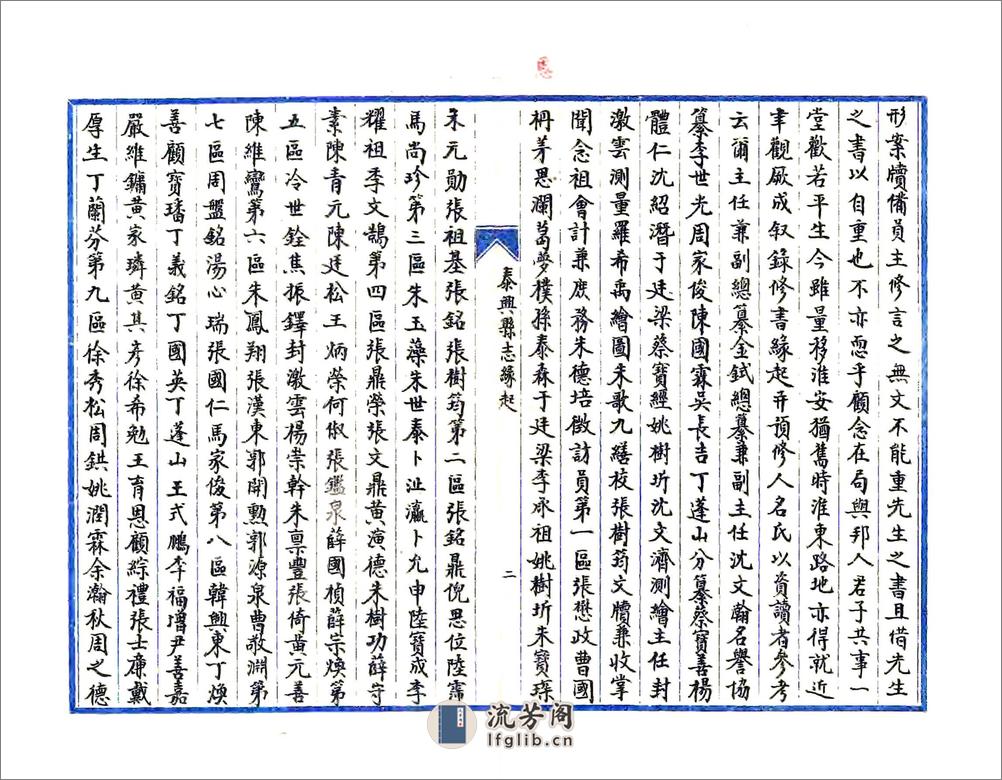 形案牘備員主修言之無文不能重先生之書且借先生
之書以自重也不亦恧乎顧念在局與邦人君子共事一
堂歡若平生今雖量移淮安猶舊時淮東路地亦得就近
聿觀厥成叙錄修書緣起并預修人名氏以資讀者參考
云爾主任兼副總纂金鉽總纂兼副主任沈文瀚名譽協
纂李世光周家俊陳國霖吳長吉丁蓬山分纂蔡寶善楊
體仁沈紹潛于廷梁蔡寶經姚樹圻沈文濟測繪主任封
激雲測量羅希禹繪圖朱歌九繕校張樹筠文牘兼收掌
聞念祖會計兼庶務朱德培徵訪員第一區張懋政曹國
枬茅思瀾葛夢樸孫泰森于廷梁李承祖姚樹圻朱寶琛
泰興縣志緣起
二
朱元勛張祖基張銘張樹筠第二區張銘鼎倪思位陸霈
馬尚珍第三區朱玉藻朱世泰卜沚瀛卜允申陸寶成李
耀祖李文鵠第四區張鼎榮張文鼎黃演德朱樹功薛守
素陳青元陳廷松王炳榮何俶張鑑泉薛國楨薛崇煥第
五區冷世銓焦振鐸封激雲楊崇幹朱稟豐張倚黃元善
陳維鸞第六區朱鳳翔張漢東郭開勲郭源泉曹敬淵第
七區周盤銘湯心瑞張國仁馬家俊第八區韓興東丁煥
善顧寶璠丁義銘丁國英丁蓬山王式鵬李福增尹善嘉
嚴維鏞黃家璘黃其彥徐希勉王育恩顧綜禮張士廉戴
厚生丁蘭芬第九區徐秀松周鉷姚潤霖余瀚秋周之德
流芳阁
lfglib.cn